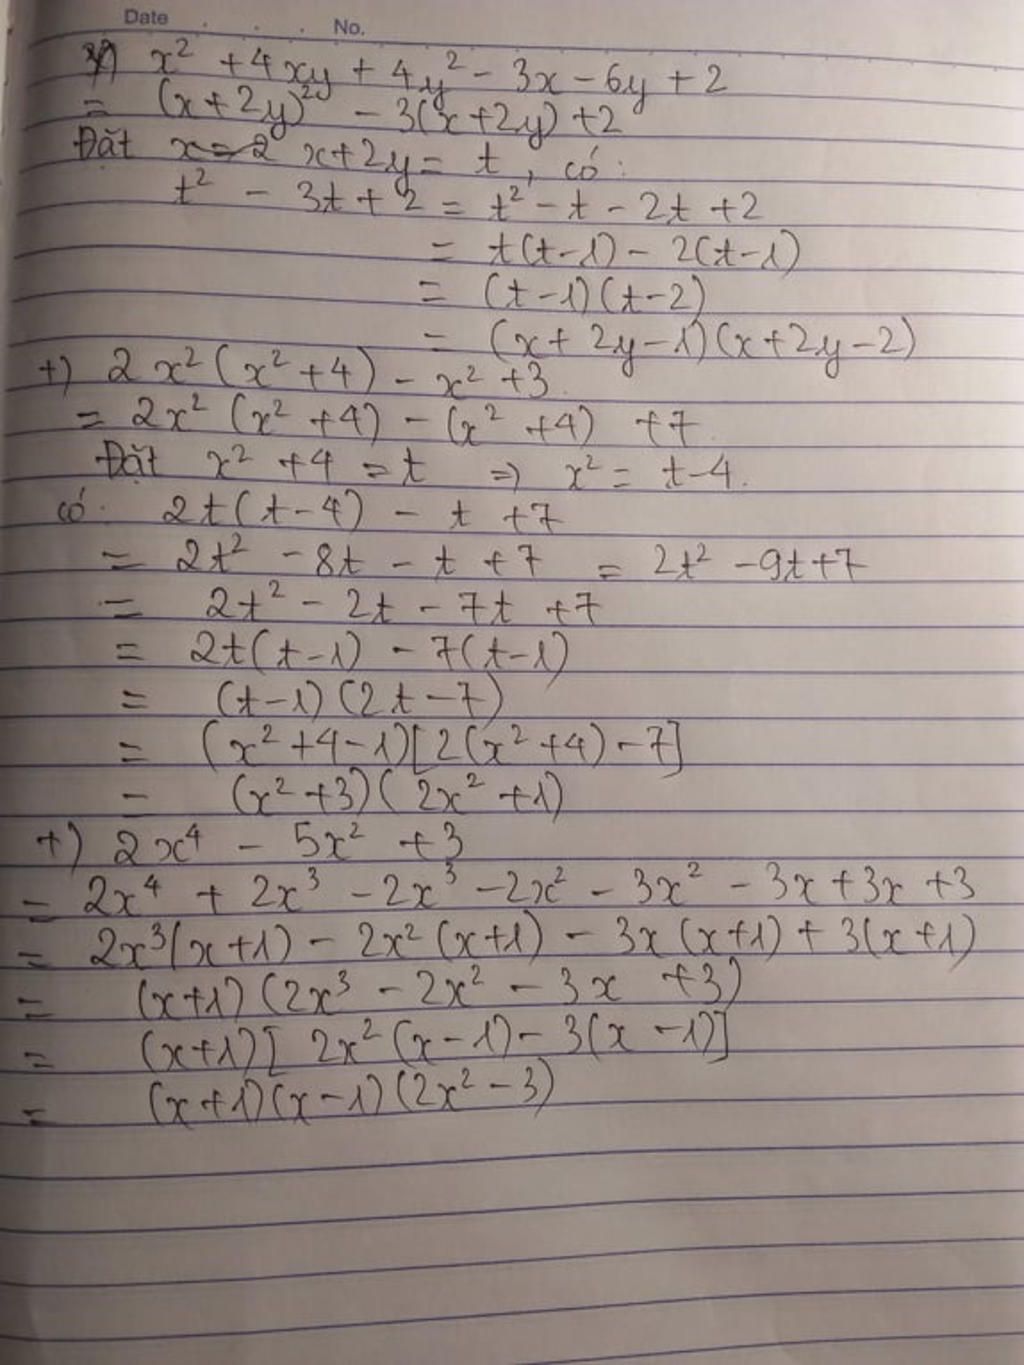 Date . . . No.
x² + 4xy + 4y² - 3x - 6y + 2
= (x+2y)² - 3(x+2y) + 2
Đặt x+2y = t, có:
t² - 3t + 2 = t² - t - 2t + 2
= t(t-1) - 2(t-1)
= (t-1)(t-2)
= (x+2y-1)(x+2y-2)
+) 2x²(x²+4) - x² + 3.
= 2x²(x²+4) - (x²+4) + 7.
Đặt x² + 4 = t ⇒ x² = t-4.
có: 2t(t-4) - t + 7
= 2t² - 8t - t + 7 = 2t² - 9t + 7
= 2t² - 2t - 7t + 7
= 2t(t-1) - 7(t-1)
= (t-1)(2t-7)
= (x²+4-1)[2(x²+4)-7]
= (x²+3)(2x²+1)
+) 2x⁴ - 5x² + 3
= 2x⁴ + 2x³ - 2x³ - 2x² - 3x² - 3x + 3x + 3
= 2x³(x+1) - 2x²(x+1) - 3x(x+1) + 3(x+1)
= (x+1)(2x³ - 2x² - 3x + 3)
= (x+1)[2x²(x-1) - 3(x-1)]
= (x+1)(x-1)(2x²-3)